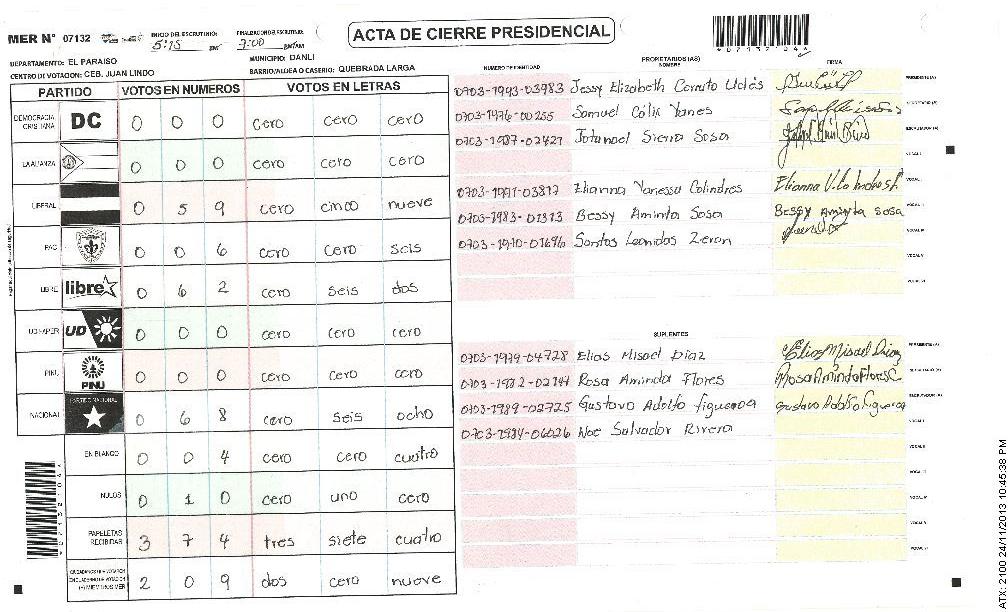 ACTA DE CIERRE PRESIDENCIAL
MER N° 07132
INICIO DEL ESCRUTINIO: 5:15 PM
FINALIZACION DEL ESCRUTINIO: 7:00
DEPARTAMENTO: EL PARAISO
MUNICIPIO: DANLI
CENTRO DE VOTACION: CEB. JUAN LINDO
BARRIO/ALDEA O CASERIO: QUEBRADA LARGA
PARTIDO VOTOS EN NUMEROS VOTOS EN LETRAS
DEMOCRACIA CRISTIANA DC 0 0 0 cero cero cero
LA ALIANZA 0 0 0 cero cero cero
LIBERAL 0 5 9 cero cinco nueve
PAC 0 0 6 cero cero seis
LIBRE libre 0 6 2 cero seis dos
UD FAPER UD 0 0 0 cero cero cero
PINU PINU 0 0 0 cero cero cero
NACIONAL PARTIDO NACIONAL 0 6 8 cero seis ocho
EN BLANCO 0 0 4 cero cero cuatro
NULOS 0 1 0 cero uno cero
PAPELETAS RECIBIDAS 3 7 4 tres siete cuatro
2 0 9 dos cero nueve
PROPIETARIOS (AS)
NUMERO DE IDENTIDAD NOMBRE FIRMA
0703-1993-03983 Jessy Elizabeth Cerrato PRESIDENTE (A)
0703-1976-00255 Samuel Cálix Yanes SECRETARIO (A)
0703-1987-02421 Jotanael Sierra Sosa ESCRUTADOR (A)
VOCAL I
0703-1991-03817 Elianna Vanessa Colindres Elianna V. VOCAL II
0703-1983-01313 Bessy Aminta Sosa Bessy Aminta sosa VOCAL III
0703-1970-01696 Santos Leonidas Zeron VOCAL IV
VOCAL V
VOCAL VI
SUPLENTES
0703-1979-04728 Elias Misael Diaz Elias Misael Diaz PRESIDENTE (A)
0703-1982-02747 Rosa Aminda Flores Rosa Aminda Flores C SECRETARIO (A)
0703-1989-02725 Gustavo Adolfo figueroa Gustavo Adolfo Figueroa ESCRUTADOR (A)
0703-1984-06026 Noe Salvador Rivera VOCAL I
VOCAL II
VOCAL III
VOCAL IV
VOCAL V
VOCAL VI
ATX: 2100 24/11/2013 10:45:38 PM